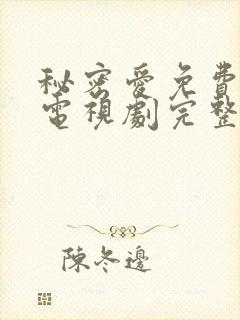 秘密愛免費
電視劇完整
陳冬邊